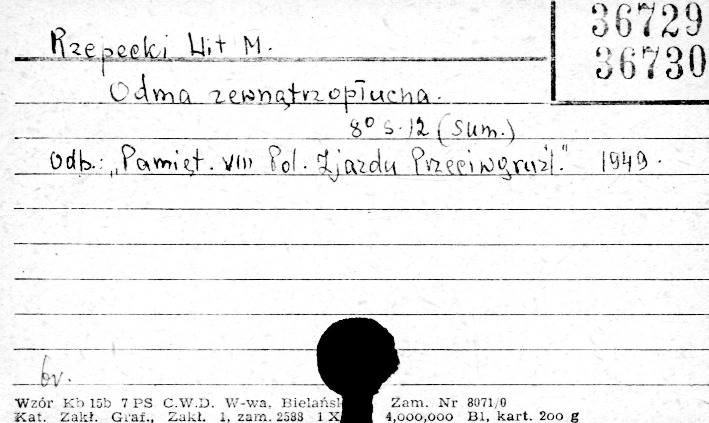 36729
36730
Rzepecki Wit M.
Odma zewnątrzopłucna.
8° s. 12 (sum.)
Odb.: „Pamięt. VIII Pol. Zjazdu Przeciwgruźl." 1949.
br.
Wzór Kb 15b 7 PS C.W.D. W-wa, Zam. Nr 8071/0
Kat. Zakł. Graf., Zakł. 1, zam. 2588 1 X 4,000,000 B1, kart. 200 g